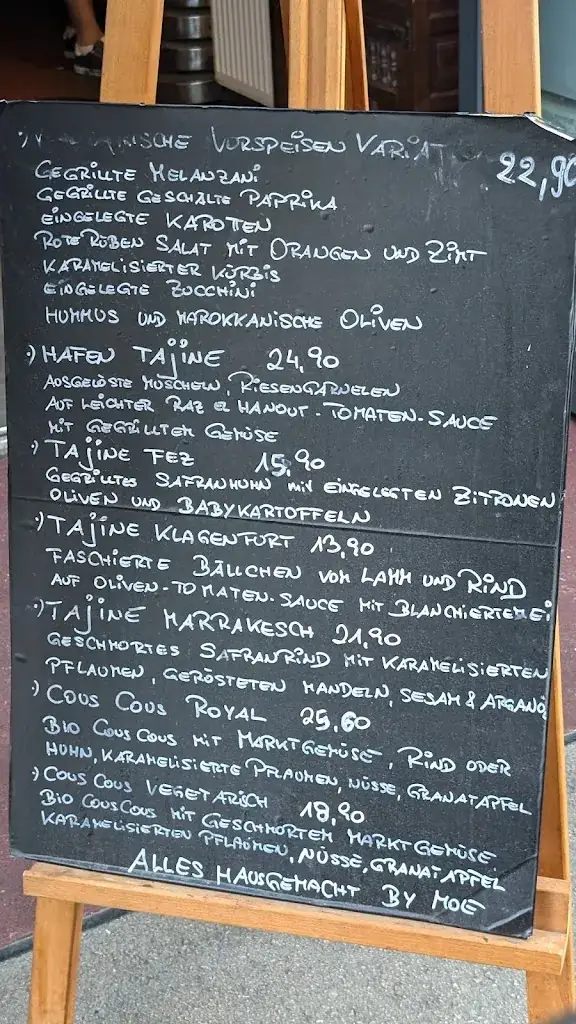 VORSPEISEN VARIAT
22,90
GEGRILLTE MELANZANI
GEGRILLTE GESCHÄLTE PAPRIKA
EINGELEGTE KAROTTEN
ROTE RÜBEN SALAT MIT ORANGEN UND ZIMT
KARAMELISIERTER KÜRBIS
EINGELEGTE ZUCCHINI
HUMMUS UND MAROKKANISCHE OLIVEN
:) HAFEN TAJINE 24,90
AUSGELÖSTE MUSCHELN, RIESENGARNELEN
AUF LEICHTER RAZ EL HANOUT-TOMATEN-SAUCE
MIT GEGRILLTEM GEMÜSE
:) TAJINE FEZ 15,90
GEGRILLTES SAFRANHUHN MIT EINGELEGTEN ZITRONEN
OLIVEN UND BABYKARTOFFELN
:) TAJINE KLAGENFURT 13,90
FASCHIERTE BÄLLCHEN VOM LAMM UND RIND
AUF OLIVEN-TOMATEN-SAUCE MIT BLANCHIERTEM EI
:) TAJINE MARRAKESCH 21,90
GESCHMORTES SAFRANRIND MIT KARAMELISIERTEN
PFLAUMEN, GERÖSTETEN MANDELN, SESAM & ARGANÖL
:) COUS COUS ROYAL 25,60
BIO COUS COUS MIT MARKTGEMÜSE, RIND ODER
HUHN, KARAMELISIERTE PFLAUMEN, NÜSSE, GRANATAPFEL
:) COUS COUS VEGETARISCH 18,90
BIO COUSCOUS MIT GESCHMORTEM MARKTGEMÜSE
KARAMELISIERTEN PFLAUMEN, NÜSSE, GRANATAPFEL
ALLES HAUSGEMACHT BY MOE